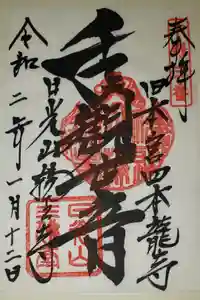 奉拝
旧本宮四本龍寺
千手観世音
日光山輪王寺
令和二年一月十二日